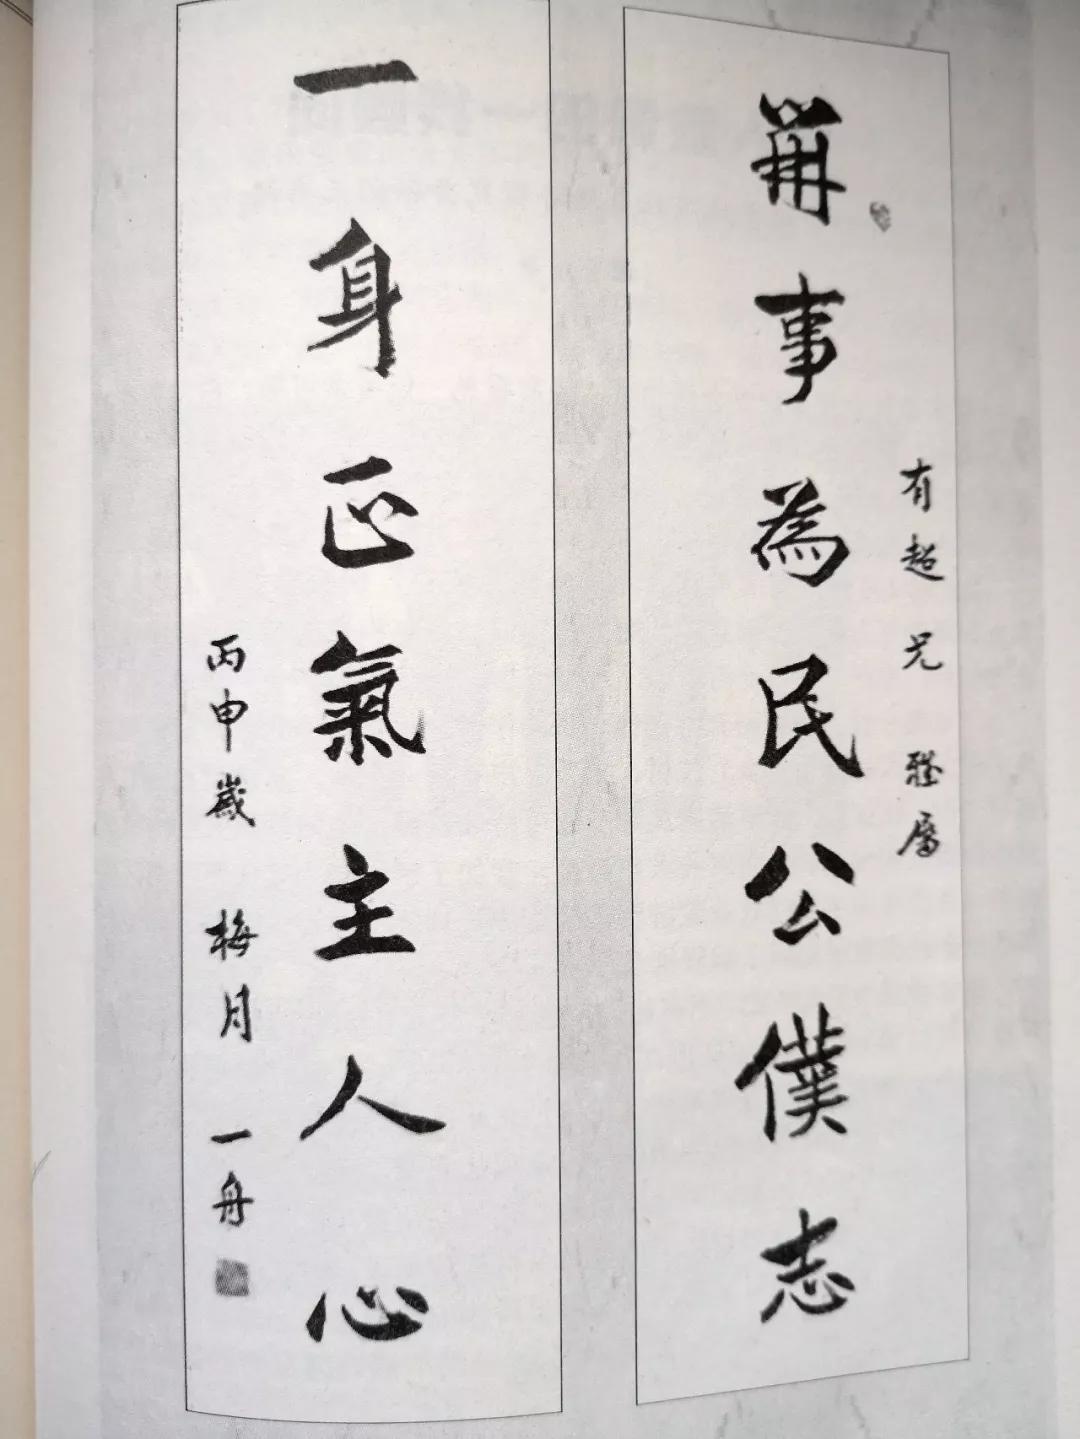 有超兄 雅属
萬事為民公僕志
一身正氣主人心
丙申歲 梅月 一舟